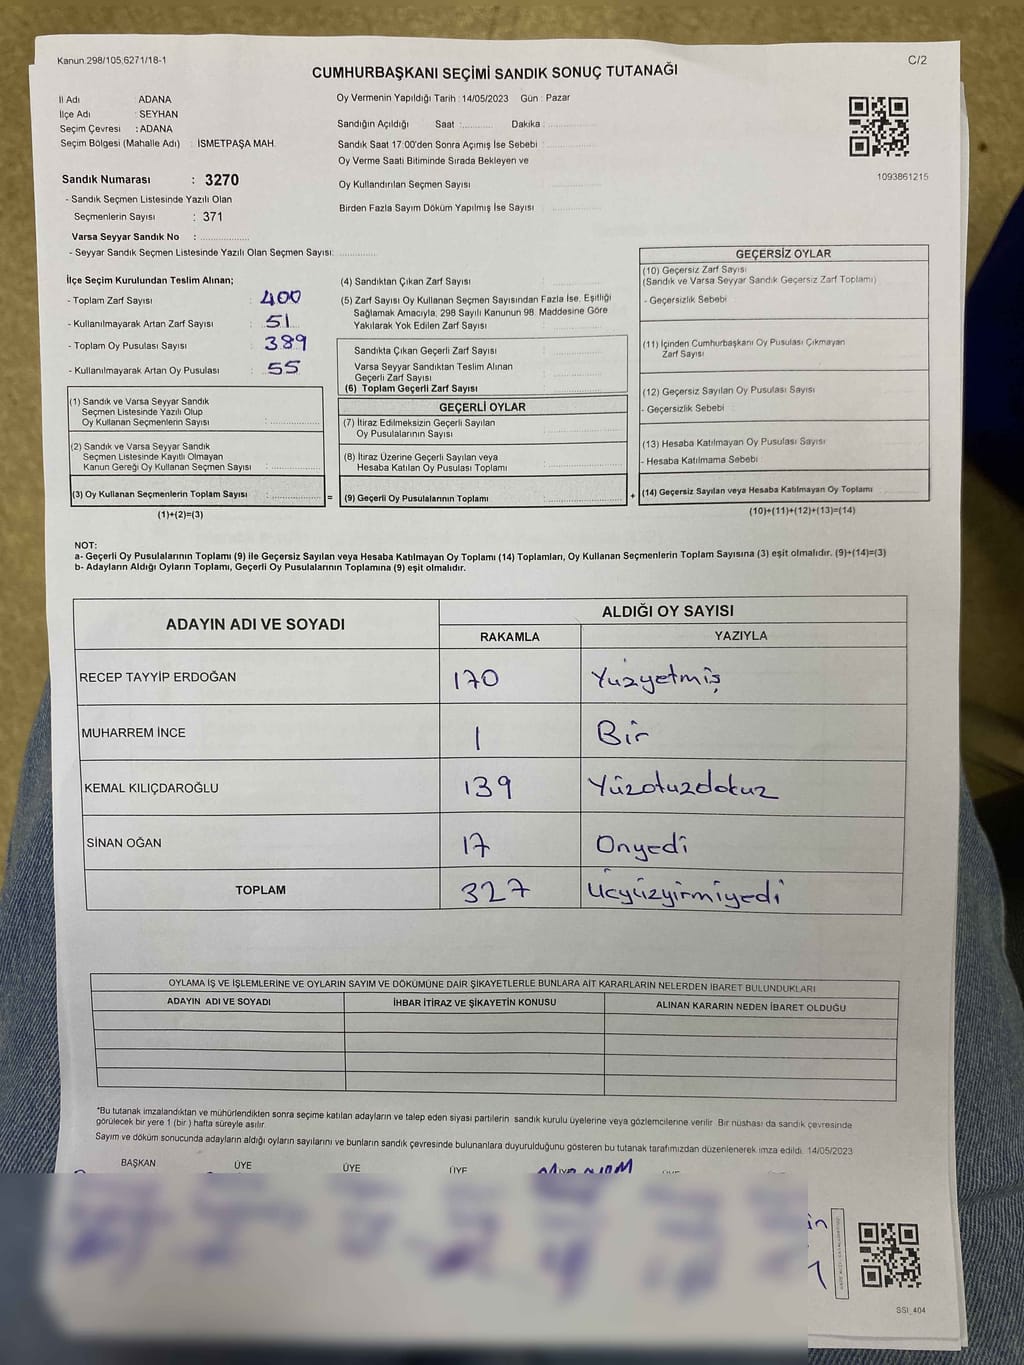 Kanun.298/105;6271/18-1
C/2
CUMHURBAŞKANI SEÇİMİ SANDIK SONUÇ TUTANAĞI
İl Adı : ADANA
İlçe Adı : SEYHAN
Seçim Çevresi : ADANA
Seçim Bölgesi (Mahalle Adı) : İSMETPAŞA MAH.
Sandık Numarası : 3270
- Sandık Seçmen Listesinde Yazılı Olan
Seçmenlerin Sayısı : 371
Varsa Seyyar Sandık No :
- Seyyar Sandık Seçmen Listesinde Yazılı Olan Seçmen Sayısı:
Oy Vermenin Yapıldığı Tarih : 14/05/2023 Gün : Pazar
Sandığın Açıldığı Saat : Dakika :
Sandık Saat 17:00'den Sonra Açımış İse Sebebi :
Oy Verme Saati Bitiminde Sırada Bekleyen ve
Oy Kullandırılan Seçmen Sayısı
Birden Fazla Sayım Döküm Yapılmış İse Sayısı :
1093861215
İlçe Seçim Kurulundan Teslim Alınan;
- Toplam Zarf Sayısı : 400
- Kullanılmayarak Artan Zarf Sayısı : 51
- Toplam Oy Pusulası Sayısı : 389
- Kullanılmayarak Artan Oy Pusulası : 55
(1) Sandık ve Varsa Seyyar Sandık
Seçmen Listesinde Yazılı Olup
Oy Kullanan Seçmenlerin Sayısı :
(2) Sandık ve Varsa Seyyar Sandık
Seçmen Listesinde Kayıtlı Olmayan
Kanun Gereği Oy Kullanan Seçmen Sayısı :
(3) Oy Kullanan Seçmenlerin Toplam Sayısı :
(1)+(2)=(3)
=
(4) Sandıktan Çıkan Zarf Sayısı :
(5) Zarf Sayısı Oy Kullanan Seçmen Sayısından Fazla İse, Eşitliği
Sağlamak Amacıyla; 298 Sayılı Kanunun 98. Maddesine Göre
Yakılarak Yok Edilen Zarf Sayısı :
Sandıkta Çıkan Geçerli Zarf Sayısı :
Varsa Seyyar Sandıktan Teslim Alınan
Geçerli Zarf Sayısı :
(6) Toplam Geçerli Zarf Sayısı :
GEÇERLİ OYLAR
(7) İtiraz Edilmeksizin Geçerli Sayılan
Oy Pusulalarının Sayısı :
(8) İtiraz Üzerine Geçerli Sayılan veya
Hesaba Katılan Oy Pusulası Toplamı :
(9) Geçerli Oy Pusulalarının Toplamı :
+
GEÇERSİZ OYLAR
(10) Geçersiz Zarf Sayısı :
(Sandık ve Varsa Seyyar Sandık Geçersiz Zarf Toplamı)
- Geçersizlik Sebebi :
(11) İçinden Cumhurbaşkanı Oy Pusulası Çıkmayan
Zarf Sayısı :
(12) Geçersiz Sayılan Oy Pusulası Sayısı :
- Geçersizlik Sebebi :
(13) Hesaba Katılmayan Oy Pusulası Sayısı :
- Hesaba Katılmama Sebebi :
(14) Geçersiz Sayılan veya Hesaba Katılmayan Oy Toplamı :
(10)+(11)+(12)+(13)=(14)
NOT:
a- Geçerli Oy Pusulalarının Toplamı (9) ile Geçersiz Sayılan veya Hesaba Katılmayan Oy Toplamı (14) Toplamları, Oy Kullanan Seçmenlerin Toplam Sayısına (3) eşit olmalıdır. (9)+(14)=(3)
b- Adayların Aldığı Oyların Toplamı, Geçerli Oy Pusulalarının Toplamına (9) eşit olmalıdır.
ADAYIN ADI VE SOYADI ALDIĞI OY SAYISI
RAKAMLA YAZIYLA
RECEP TAYYİP ERDOĞAN 170 Yüzyetmiş
MUHARREM İNCE 1 Bir
KEMAL KILIÇDAROĞLU 139 Yüzotuzdokuz
SİNAN OĞAN 17 Onyedi
TOPLAM 327 Üçyüzyirmiyedi
OYLAMA İŞ VE İŞLEMLERİNE VE OYLARIN SAYIM VE DÖKÜMÜNE DAİR ŞİKAYETLERLE BUNLARA AİT KARARLARIN NELERDEN İBARET BULUNDUKLARI
ADAYIN ADI VE SOYADI İHBAR İTİRAZ VE ŞİKAYETİN KONUSU ALINAN KARARIN NEDEN İBARET OLDUĞU
*Bu tutanak imzalandıktan ve mühürlendikten sonra seçime katılan adayların ve talep eden siyasi partilerin sandık kurulu üyelerine veya gözlemcilerine verilir. Bir nüshası da sandık çevresinde
görülecek bir yere 1 (bir ) hafta süreyle asılır.
Sayım ve döküm sonucunda adayların aldığı oyların sayılarını ve bunların sandık çevresinde bulunanlara duyurulduğunu gösteren bu tutanak tarafımızdan düzenlenerek imza edildi. 14/05/2023
BAŞKAN ÜYE ÜYE ÜYE
SSI_404